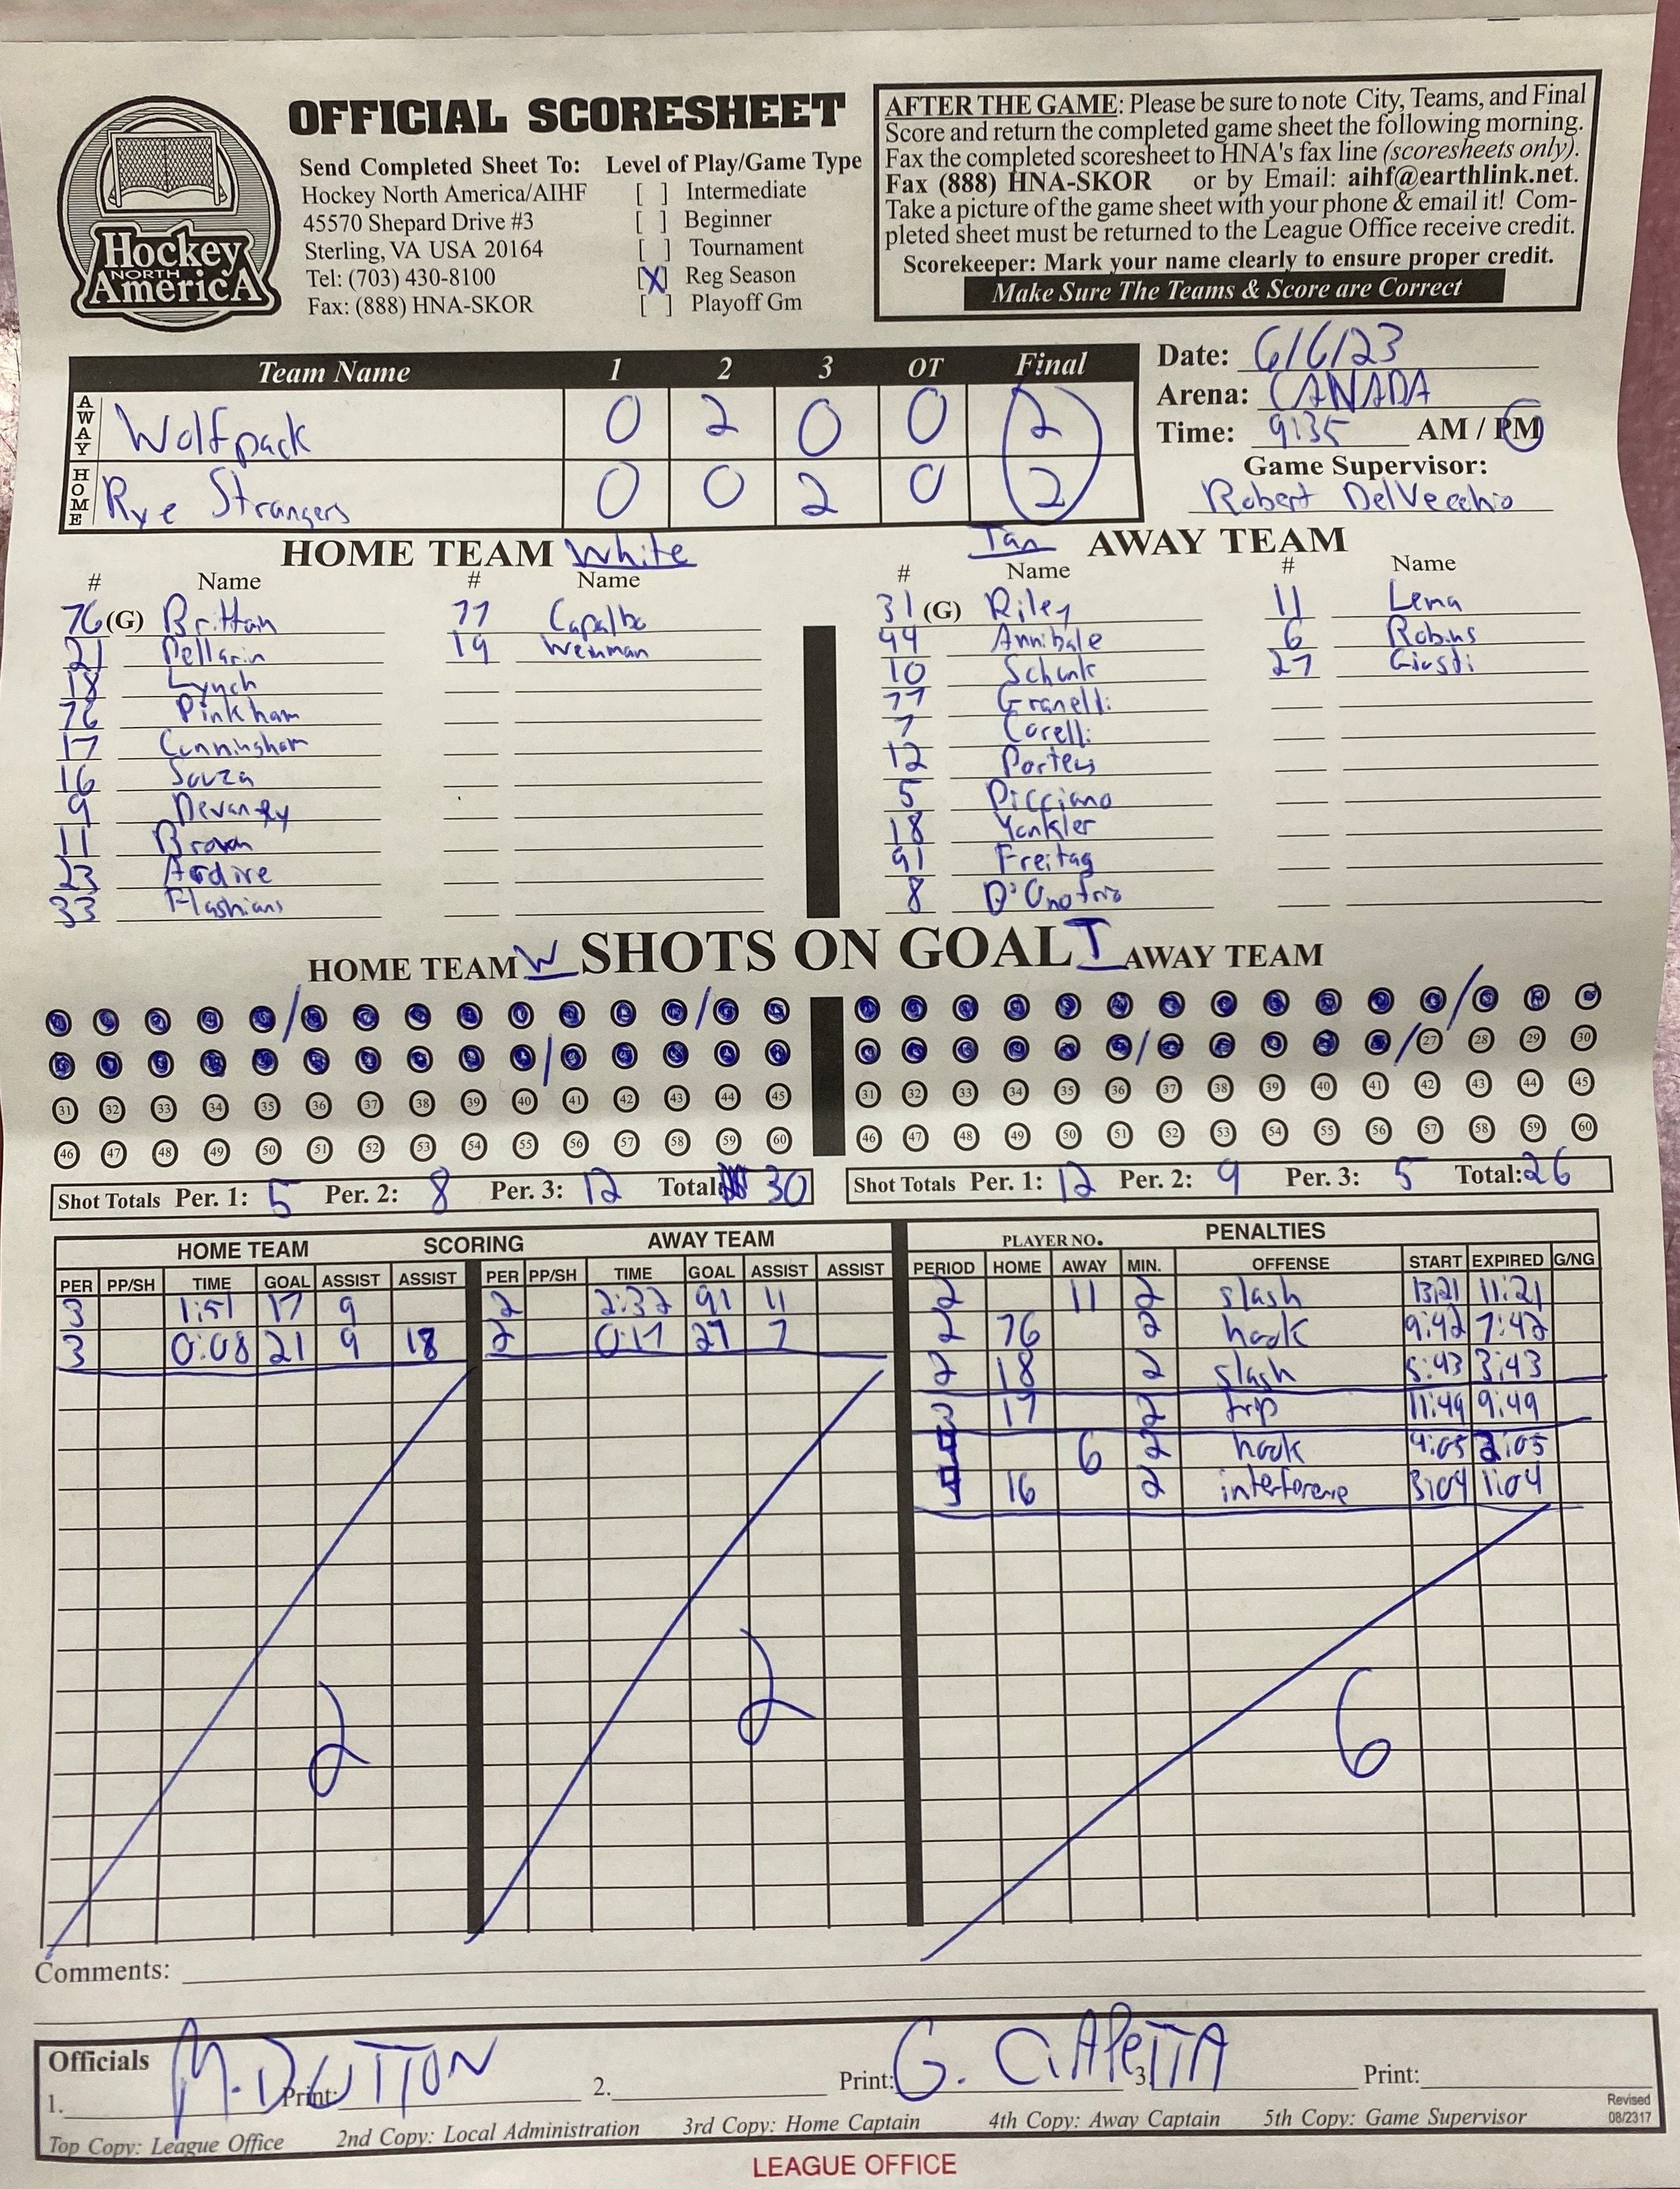 OFFICIAL SCORESHEET
Send Completed Sheet To:
Hockey North America/AIHF
45570 Shepard Drive #3
Sterling, VA USA 20164
Tel: (703) 430-8100
Fax: (888) HNA-SKOR
Level of Play/Game Type
[ ] Intermediate
[ ] Beginner
[ ] Tournament
[X] Reg Season
[ ] Playoff Gm
Hockey
NORTH
AmericA
AFTER THE GAME: Please be sure to note City, Teams, and Final
Score and return the completed game sheet the following morning.
Fax the completed scoresheet to HNA's fax line (scoresheets only).
Fax (888) HNA-SKOR or by Email: aihf@earthlink.net.
Take a picture of the game sheet with your phone & email it! Com-
pleted sheet must be returned to the League Office receive credit.
Scorekeeper: Mark your name clearly to ensure proper credit.
Make Sure The Teams & Score are Correct
Team Name 1 2 3 OT Final
AWAY Wolfpack 0 2 0 0 2
HOME Rye Strangers 0 0 2 0 2
Date: 6/6/23
Arena: CANADA
Time: 9:35 AM / PM
Game Supervisor:
Robert DelVecchio
HOME TEAM White
# Name # Name
76 (G) Brittan 77 Capalbo
21 Pellarin 19 Weinman
18 Lynch
76 Pinkham
17 Cunningham
16 Souza
9 Devaney
11 Brown
23 Ardire
33 Flashians
Tan AWAY TEAM
# Name # Name
31 (G) Riley 11 Lema
44 Annibale 6 Robins
10 Schunk 27 Giusti
77 Granelli
7 Corelli
12 Porteus
5 Picciano
18 Yankler
91 Freitag
8 D'Onofrio
HOME TEAM W SHOTS ON GOAL T AWAY TEAM
27 28 29 30
31 32 33 34 35 36 37 38 39 40 41 42 43 44 45 31 32 33 34 35 36 37 38 39 40 41 42 43 44 45
46 47 48 49 50 51 52 53 54 55 56 57 58 59 60 46 47 48 49 50 51 52 53 54 55 56 57 58 59 60
Shot Totals Per. 1: 5 Per. 2: 8 Per. 3: 12 Total: 30
Shot Totals Per. 1: 12 Per. 2: 9 Per. 3: 5 Total: 26
HOME TEAM SCORING AWAY TEAM
PER PP/SH TIME GOAL ASSIST ASSIST PER PP/SH TIME GOAL ASSIST ASSIST
3 1:51 17 9 2 2:32 91 11
3 0:08 21 9 18 2 0:17 27 7
2 2
PLAYER NO. PENALTIES
PERIOD HOME AWAY MIN. OFFENSE START EXPIRED G/NG
2 11 2 slash 13:21 11:21
2 76 2 hook 9:42 7:42
2 18 2 slash 5:43 3:43
3 17 2 trip 11:49 9:49
4 6 2 hook 4:05 2:05
4 16 2 interference 3:04 1:04
6
Comments:
Officials
1. M. DUTTON Print: 2. Print: G. CIAPETTA 3. Print:
Top Copy: League Office 2nd Copy: Local Administration 3rd Copy: Home Captain 4th Copy: Away Captain 5th Copy: Game Supervisor
Revised
08/2317
LEAGUE OFFICE